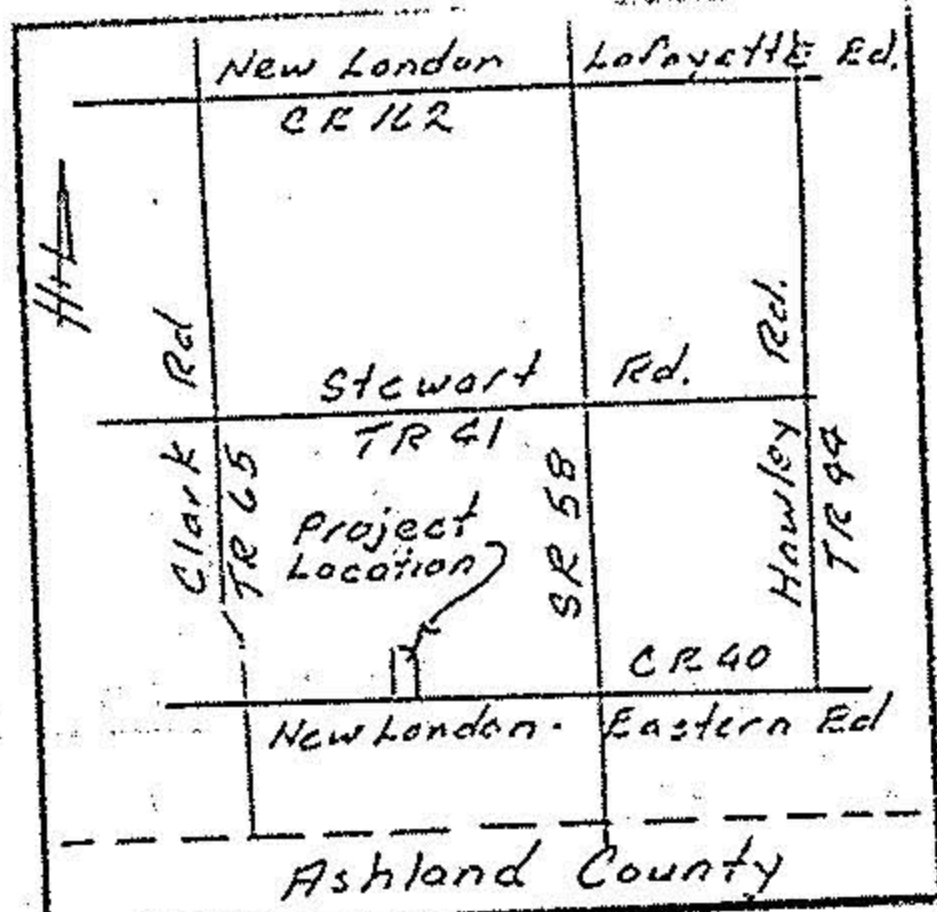 New London Lafayette Ed.
CR 162
Rd
Rd.
Stewart Rd.
TR 41
Clark
TR 65
Project
Location
SR 58
Hawley
TR 44
CR 40
New London - Eastern Ed
Ashland County